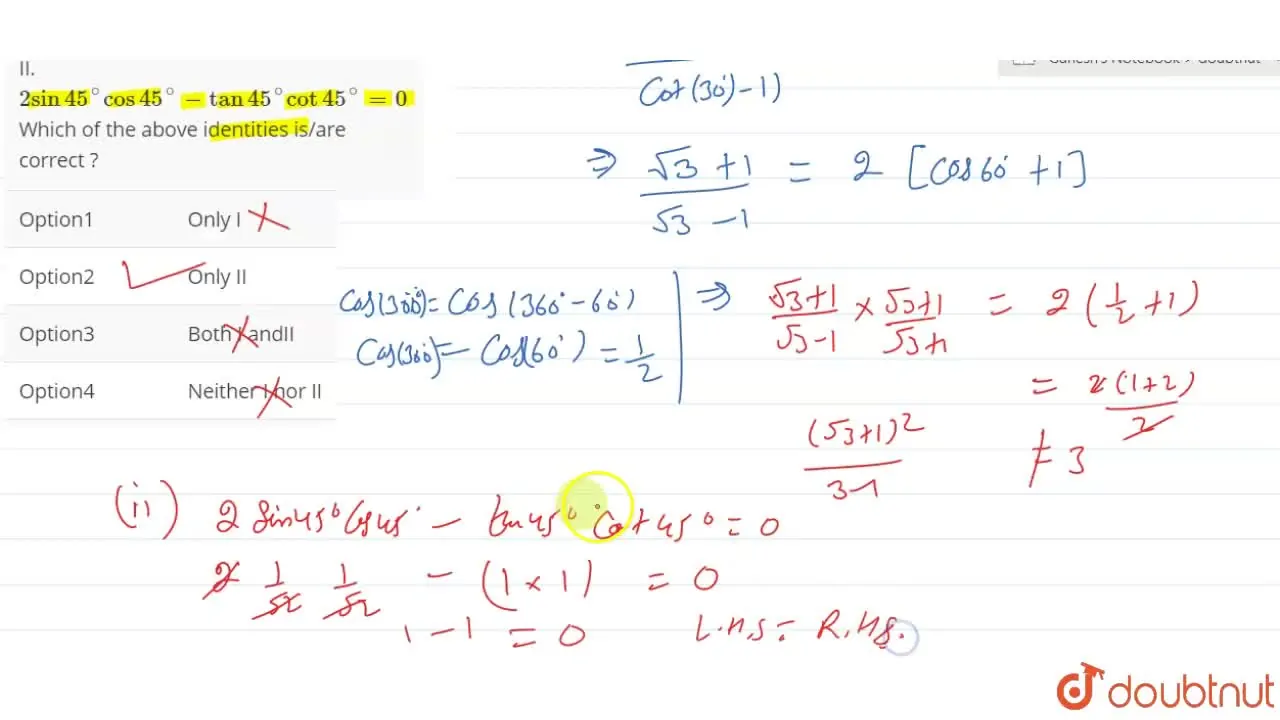 II.
2sin 45° cos 45° − tan 45° cot 45° = 0
Which of the above identities is/are
correct ?
Option1 Only I
Option2 Only II
Option3 Both I andII
Option4 Neither I nor II
Cot(30°) - 1)
⇒ √3 + 1 / √3 - 1 = 2 [Cos 60° + 1]
Cos(300°) = Cos (360° - 60°)
Cos(300°) = Cos(60°) = 1/2
⇒ √3+1 / √3-1 × √3+1 / √3+1 = 2 (1/2 + 1)
= 2 (1+2) / 2
(√3+1)² / 3-1 ≠ 3
(ii) 2 Sin45° Cos45° - tan 45° Cot 45° = 0
2 1/√2 1/√2 - (1 × 1) = 0
1 - 1 = 0 L.H.S = R.H.S.
doubtnut